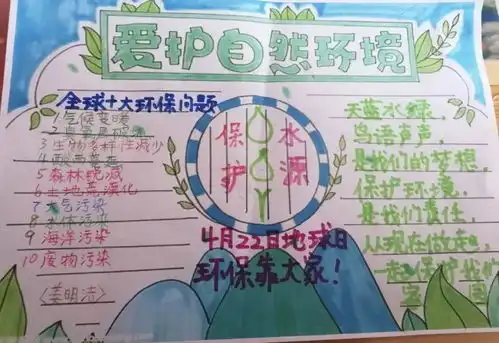 爱护自然环境
全球十大环保问题
1 气候变暖
3 生物多样性减少
5 森林锐减
6 土地荒漠化
7 大气污染
8 水体污染
9 海洋污染
10 废物污染
《姜明洁》
保护
水源
4月22日地球日
环保靠大家!
天蓝水绿,
鸟语声声,
是我们的梦想,
保护环境,
是我们责任,
从现在做起,
一起保护我们
家园